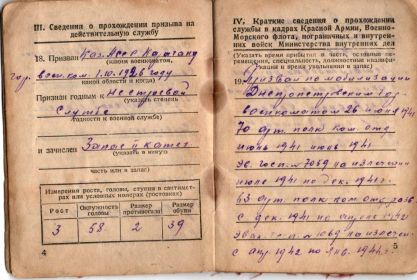 III. Сведения о прохождении призыва на
действительную службу
18. Призван Каз. АССР
(каким военкоматом,
воен. ком. 1.10.1926 году
какой области и когда)
Признан годным к Нестроевой
(указать степень
Службе
годности к военной службе)
и зачислен Запас II катег
(указать в какую
часть или в запас)
Измерения роста, головы, ступни в сантимет-
рах или условных номерах (ростовках)
Рост Окружность головы Размер противогаза Размер обуви
3 58 2 39
4
IV. Краткие сведения о прохождении
службы в кадрах Красной Армии, Военно-
Морского флота, пограничных и внутрен-
них войск Министерства внутренних дел
(Указать время прибытия в часть, основные пе-
19. Призван по мобилизации
Днепропетровским гор
военкоматом 26 июня 1941
70 арт. полк ком. отд
июнь 1941 июль 1941
эв. госп. № 7089 на излечен
июле 1941 по дек. 1941 г.
63 арт. полк пом. отд.
с дек. 1941 по апрель 1942
1069 на излечен
с апр. 1942 по янв. 1944 г.
5